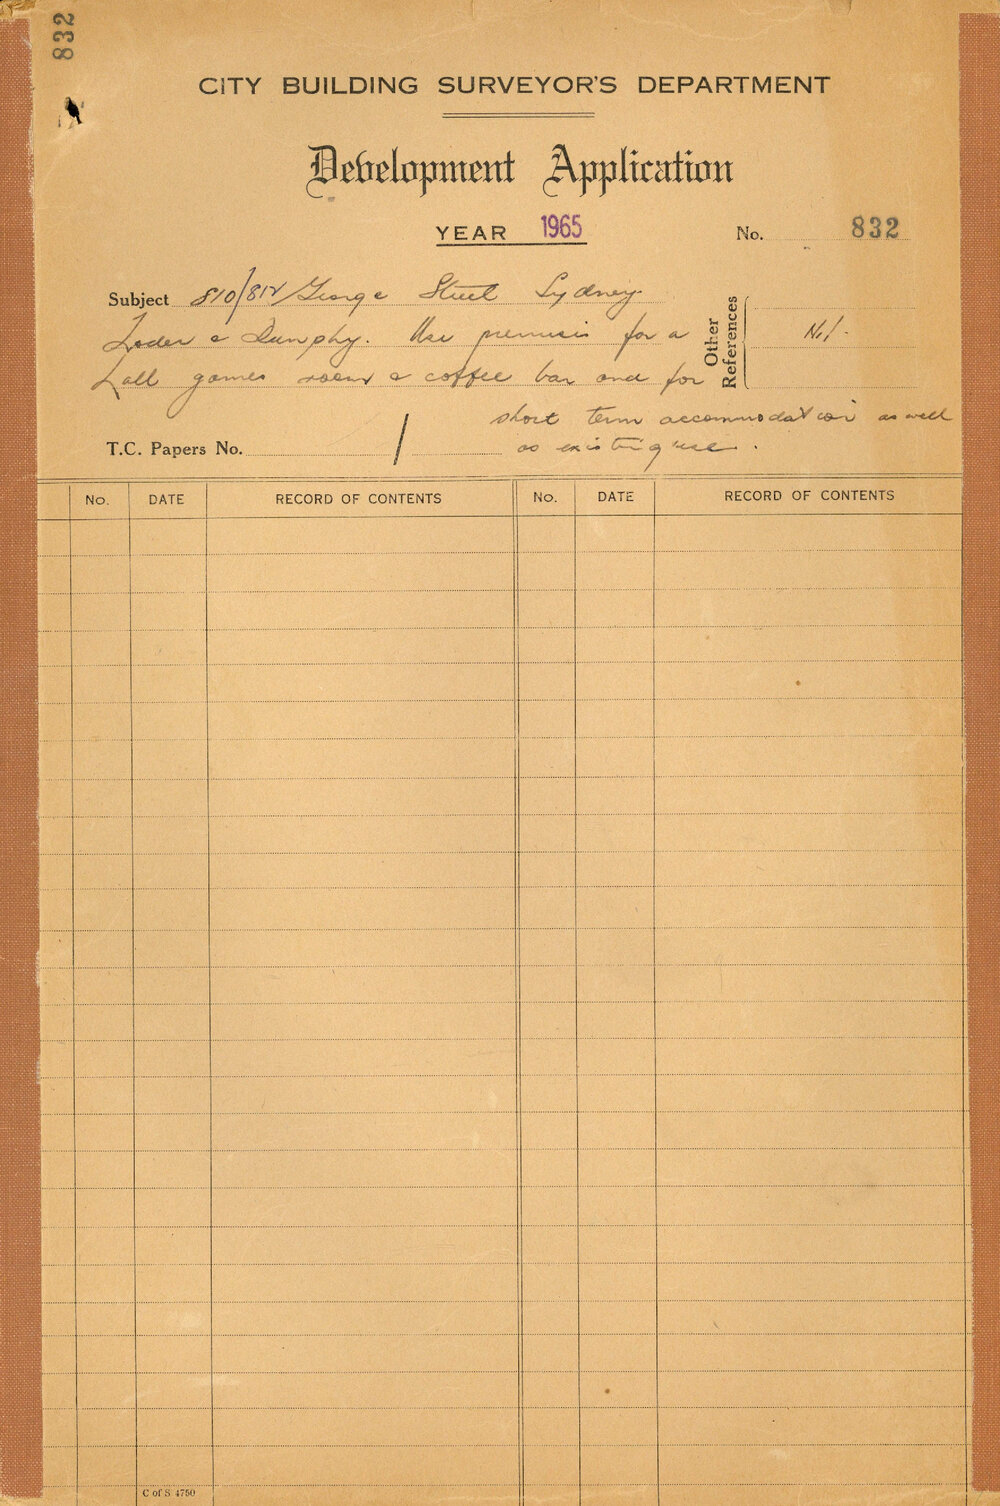 832
CITY BUILDING SURVEYOR'S DEPARTMENT
Development Application
YEAR 1965 No. 832
Subject 810/812 George Street Sydney
& Dunphy. Use premises for a
games room & coffee bar and for
short term accommodation as well
as existing use.
Other References
T.C. Papers No. /
No. DATE RECORD OF CONTENTS No. DATE RECORD OF CONTENTS
C of S 4750